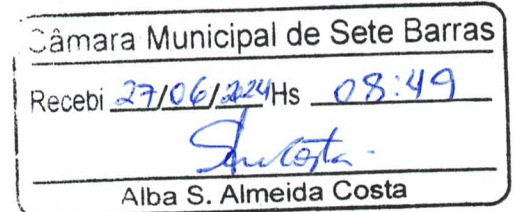 Câmara Municipal de Sete Barras
Recebi 27/06/2024 Hs 08:49
Alba S. Almeida Costa